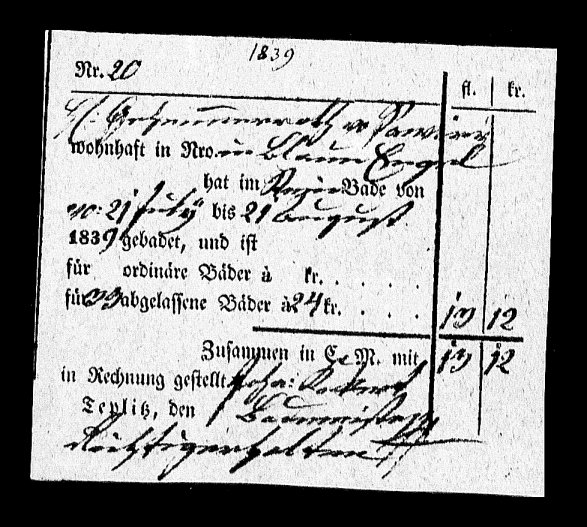 1839
Nr. 20
fl. kr.
H: Geheimmerrath v
wohnhaft in Nro. im Blauen Engel
hat im Bade von
no: 21 July bis 21 August
1839 gebadet, und ist
für ordinäre Bäder à kr. . . . . .
für 33 abgelassene Bäder à 24 kr. . . . . 13 12
Zusammen in C. M. mit 13 12
in Rechnung gestellt Joha:
Teplitz, den
Richtig erhalten